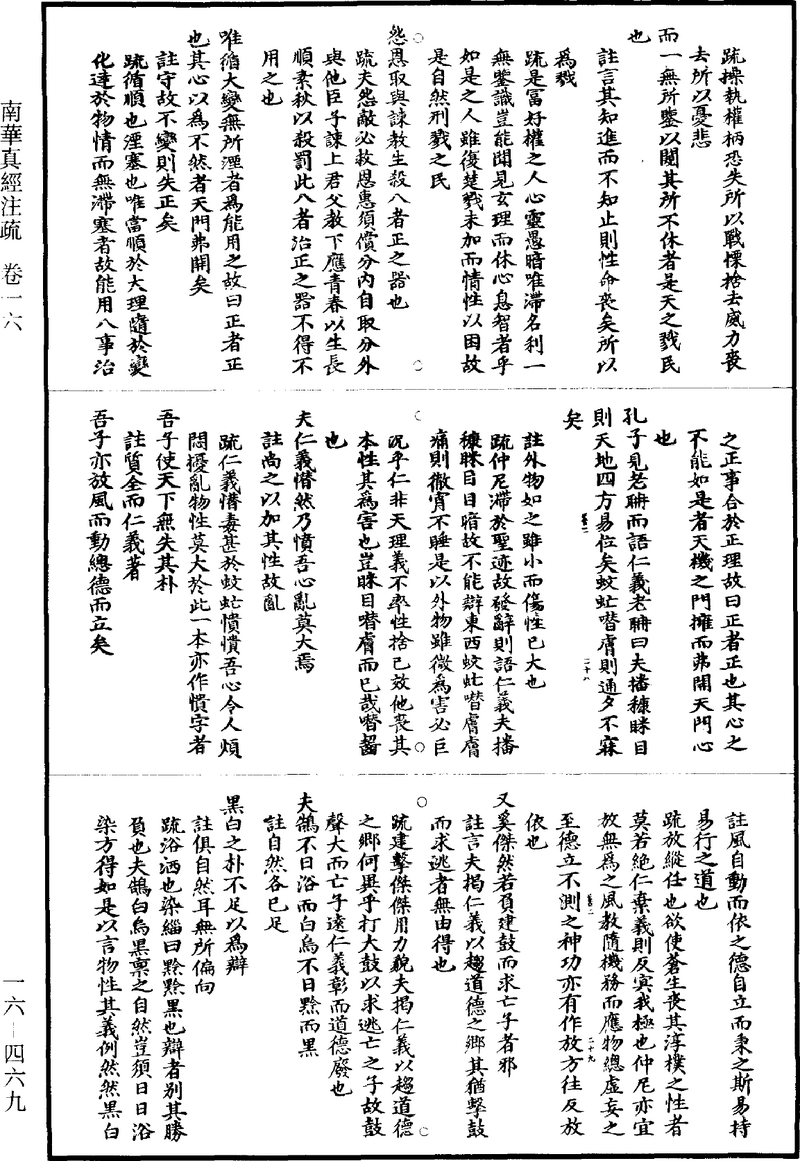 南華真經注疏　卷一六
疏操執權柄恐失所以戰慄捨去威力喪
去所以憂悲
而一無所鑒以闚其所不休者是天之戮民
也
註言其知進而不知止則性命喪矣所以
為戮
疏是富好權之人心靈愚暗唯滯名利一
無鑒識豈能闚見玄理而休心息智者乎
如是之人雖復楚戮未加而情性以困故
是自然刑戮之民
怨恩取與諫教生殺八者正之器也
疏夫怨敵必殺恩惠須償分內自取分外
與他臣子諫上君父教下應青春以生長
順素秋以殺罰此八者治正之器不得不
用之也
唯循大變無所湮者為能用之故曰正者正
也其心以為不然者天門弗開矣
註守故不變則失正矣
疏循順也湮塞也唯當順於大理隨於變
化達於物情而無滯塞者故能用八事治
之正事合於正理故曰正者正也其心之
不能如是者天機之門擁而弗開天門心
也
孔子見老聃而語仁義老聃曰夫播穅眯目
則天地四方易位矣蚊虻噆膚則通夕不寐
矣
註外物加之雖小而傷性已大也
疏仲尼滯於聖迹故發辭則語仁義夫播
穅眯目目暗故不能辯東西蚊虻噆膚膚
痛則徹宵不睡是以外物雖微為害必巨
況乎仁非天理義不率性捨己效他喪其
本性其為害也豈眯目噆膚而已哉噆齧
也
夫仁義憯然乃憤吾心亂莫大焉
註尚之以加其性故亂
疏仁義憯毒甚於蚊虻憒憒吾心令人煩
悶擾亂物性莫大於此一本亦作憤字者
吾子使天下無失其朴
註質全而仁義著
吾子亦放風而動總德而立矣
二十八
註風自動而依之德自立而秉之斯易持
易行之道也
疏放縱任也欲使蒼生喪其淳樸之性者
莫若絕仁棄義則反冥我極也仲尼亦宜
放無為之風教隨機務而應物總虛妄之
至德立不測之神功亦有作放方往反放
依也
又奚傑然若負建鼓而求亡子者邪
註言夫揭仁義以趨道德之鄉其猶擊鼓
而求逃者無由得也
疏建擊傑傑用力貌夫揭仁義以趨道德
之鄉何異乎打大鼓以求逃亡之子故鼓
聲大而亡子遠仁義彰而道德廢也
夫鵠不日浴而白烏不日黔而黑
註自然各已足
黑白之朴不足以為辯
註俱自然耳無所偏向
疏浴洒也染緇曰黔黔黑也辯者別其勝
負也夫鵠白烏黑稟之自然豈須日日浴
染方得如是以言物性其義例然然黑白
二十九
一六—四六九